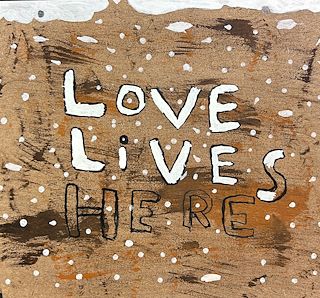 LOVE
LiVES
HERE